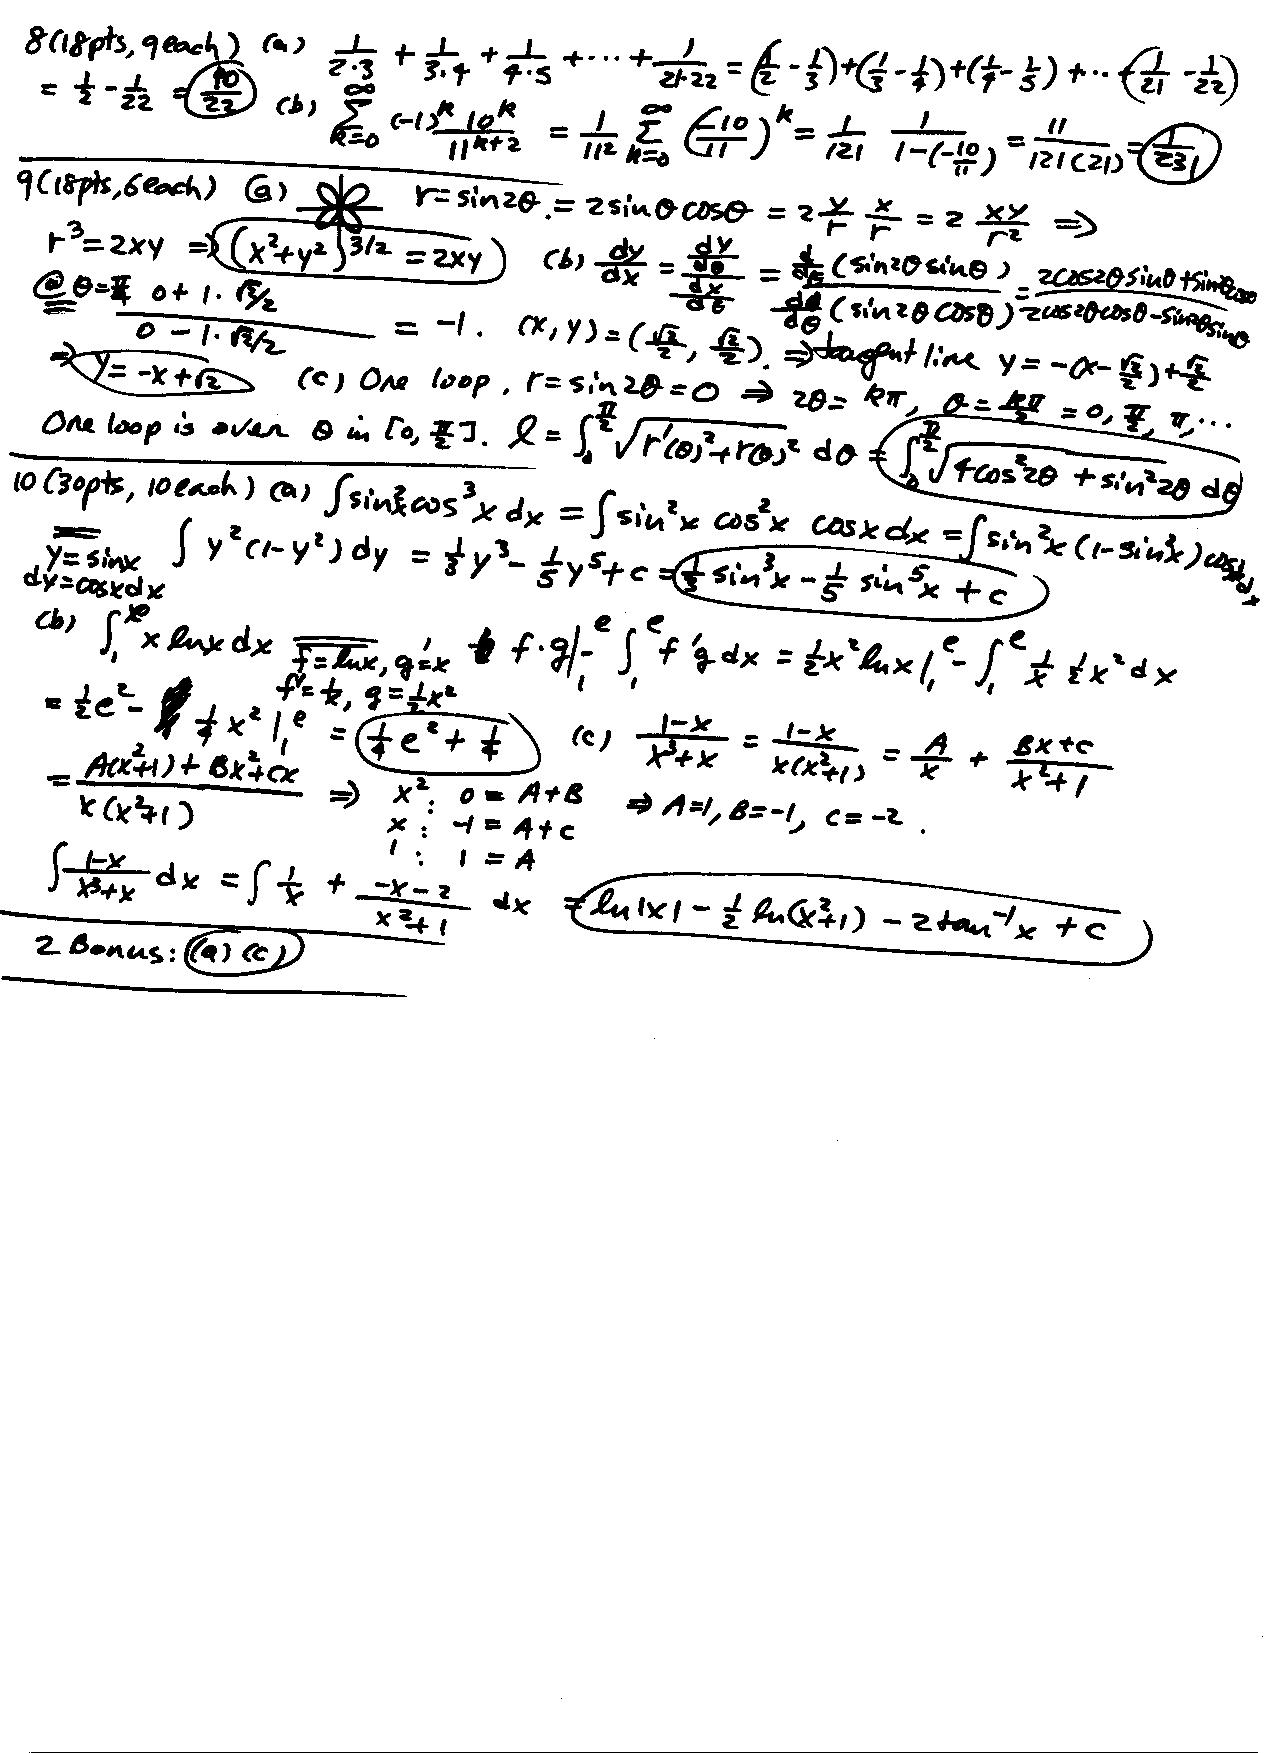 8(18pts, 9each) (a) 1/(2·3) + 1/(3·4) + 1/(4·5) + ··· + 1/(21·22) = (1/2 - 1/3) + (1/3 - 1/4) + (1/4 - 1/5) + ·· + (1/21 - 1/22)
= 1/2 - 1/22 = 10/22 (b) ∑_{k=0}^{∞} (-1)^k 10^k / 11^{k+2} = 1/11² ∑_{k=0}^{∞} (-10/11)^k = 1/121 1/(1-(-10/11)) = 11/(121(21)) = 1/231
9(18pts, 6each) (a) r = sin2θ. = 2sinθcosθ = 2 y/r x/r = 2 xy/r² ⇒
r³ = 2xy ⇒ (x²+y²)^{3/2} = 2xy (b) dy/dx = (dy/dθ)/(dx/dθ) = (d/dθ (sin2θ sinθ))/(d/dθ (sin2θ cosθ)) = (2cos2θsinθ + sin2θcosθ)/(2cos2θcosθ - sin2θsinθ)
@ θ=π/4 (0 + 1·√2/2)/(0 - 1·√2/2) = -1. (x, y) = (√2/2, √2/2). ⇒ tangent line y = -(x-√2/2)+√2/2
⇒ y = -x+√2 (c) One loop. r = sin2θ = 0 ⇒ 2θ = kπ, θ = kπ/2 = 0, π/2, π, ...
One loop is over θ in [0, π/2]. l = ∫_0^{π/2} √(r'(θ)²+r(θ)²) dθ = ∫_0^{π/2} √(4cos²2θ + sin²2θ) dθ
10(30pts, 10each) (a) ∫sin²x cos³x dx = ∫sin²x cos²x cosx dx = ∫sin²x (1-sin²x) cosx dx
y=sinx dy=cosxdx ∫y²(1-y²)dy = 1/3 y³ - 1/5 y⁵ + c = 1/3 sin³x - 1/5 sin⁵x + c
(b) ∫_1^e x lnx dx f=lnx, g'=x f'=1/x, g=1/2 x² f·g|_1^e - ∫_1^e f'g dx = 1/2 x² lnx|_1^e - ∫_1^e 1/x 1/2 x² dx
= 1/2 e² - 1/4 x²|_1^e = 1/4 e² + 1/4 (c) (1-x)/(x³+x) = (1-x)/(x(x²+1)) = A/x + (Bx+c)/(x²+1)
= (A(x²+1) + Bx²+cx)/(x(x²+1)) ⇒ x²: 0 = A+B ⇒ A=1, B=-1, c=-2.
x: -1 = A+c
1: 1 = A
∫(1-x)/(x³+x) dx = ∫1/x + (-x-2)/(x²+1) dx = ln|x| - 1/2 ln(x²+1) - 2tan⁻¹x + c
2 Bonus: (a) (c)